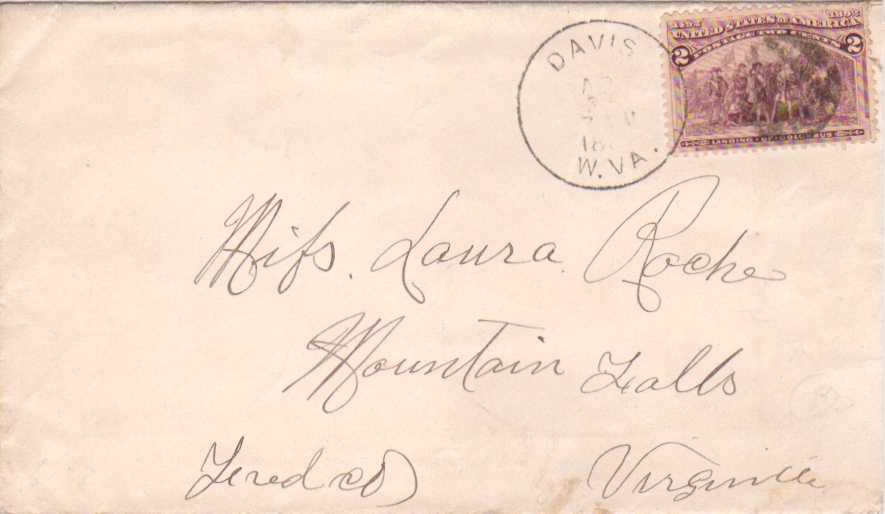 1492 1892
UNITED STATES OF AMERICA
POSTAGE TWO CENTS
2 2
LANDING OF COLUMBUS
DAVIS
18
W. VA.
Miſs. Laura Roche
Mountain Falls
Fred co Virginia